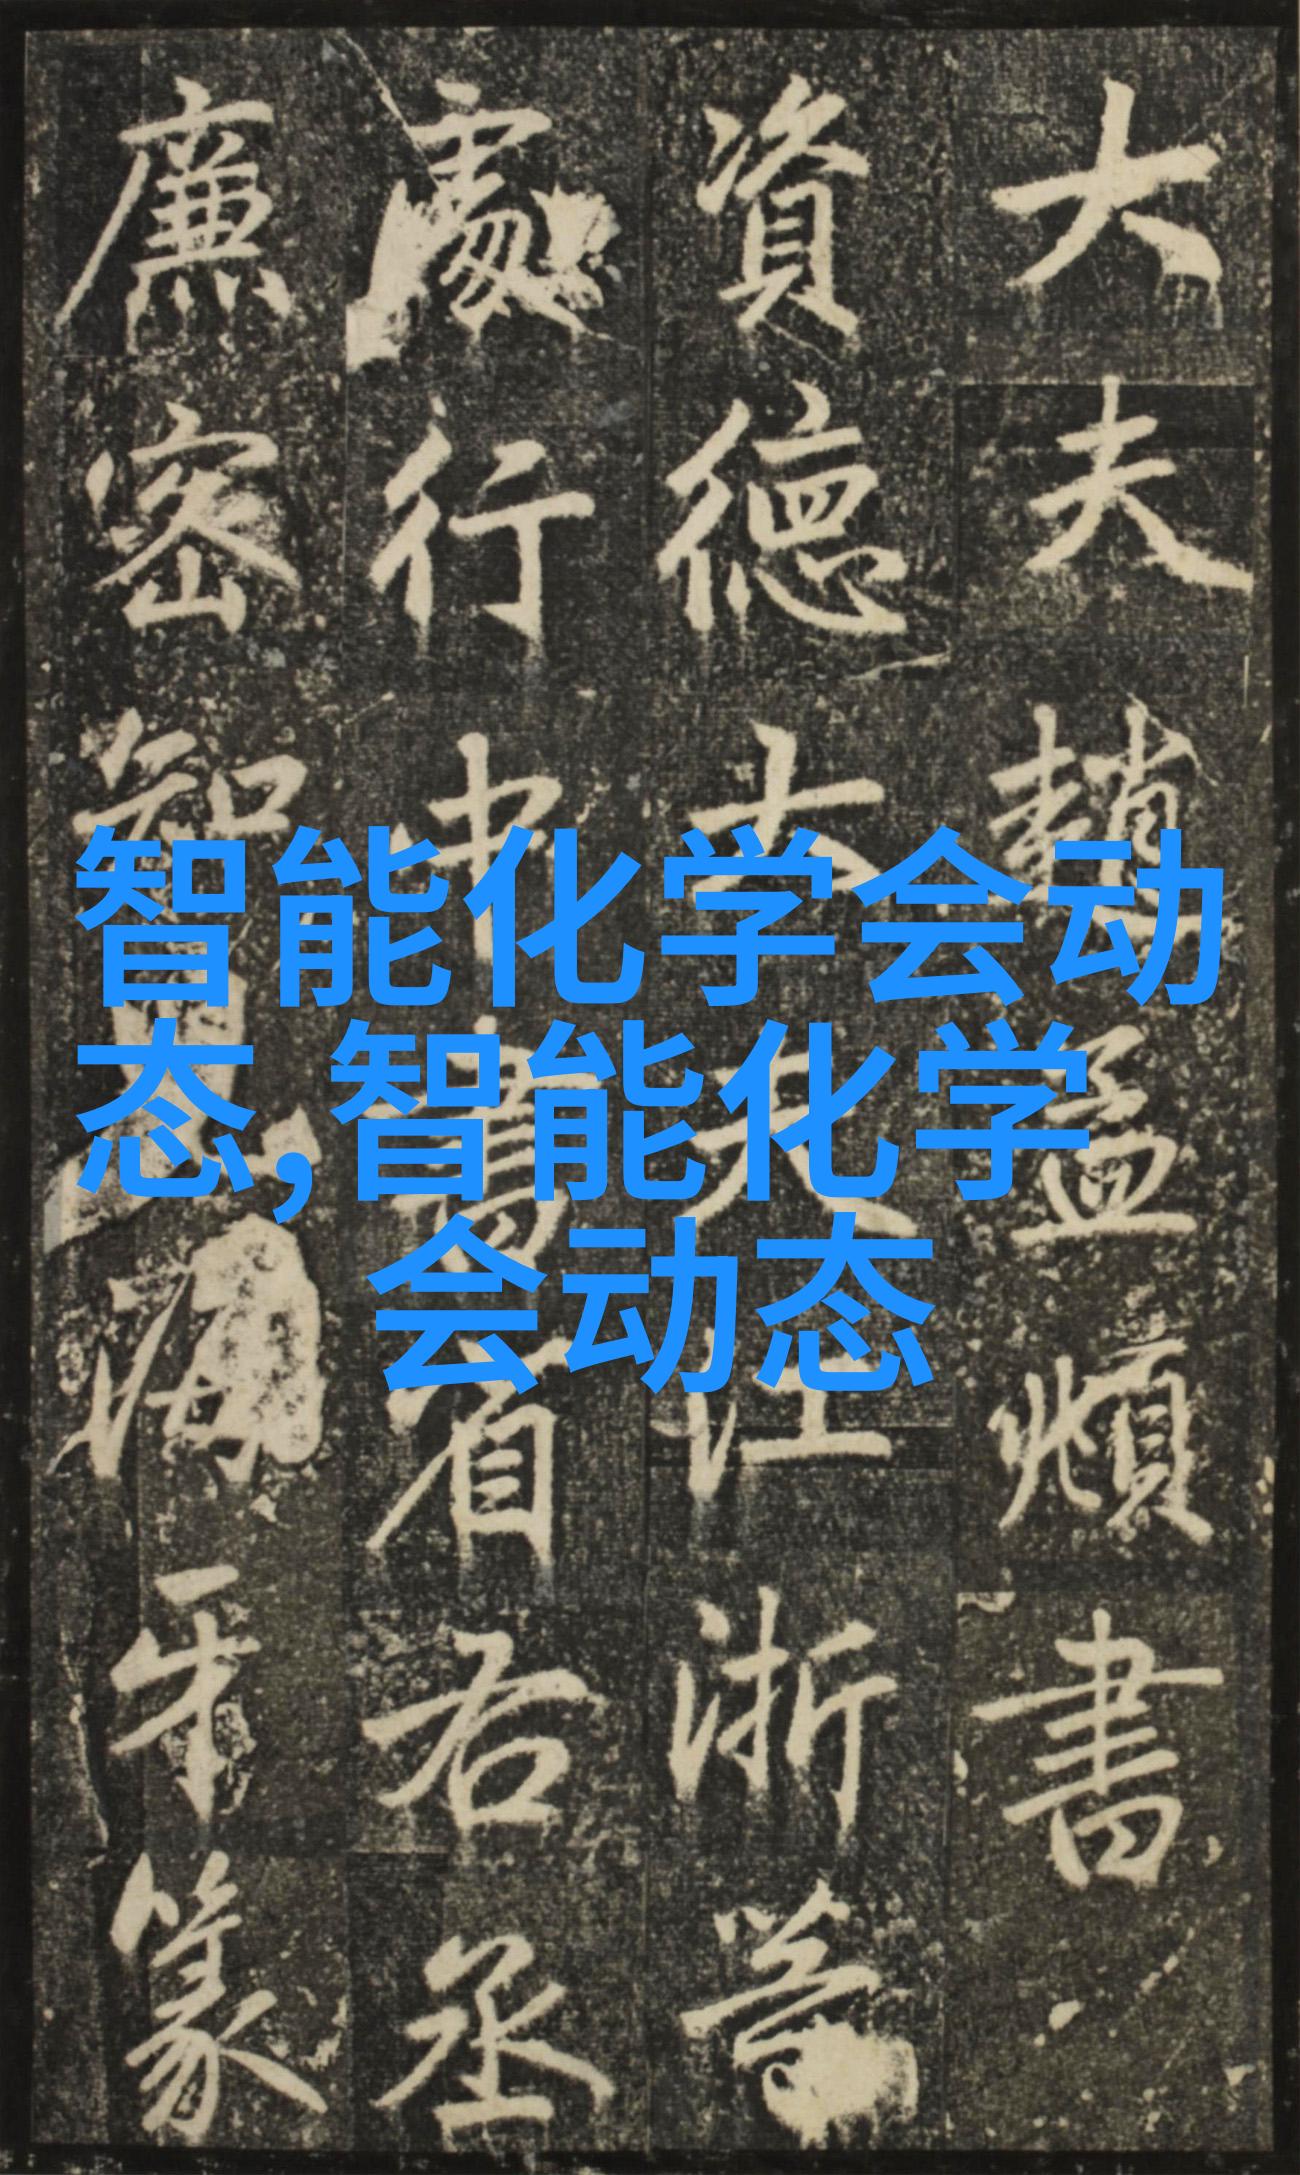 智能化学会动
态,智能化学
会动态
大夫趙孟頫書
資德大夫江浙等
處行中書省右丞
廉密海牙篆